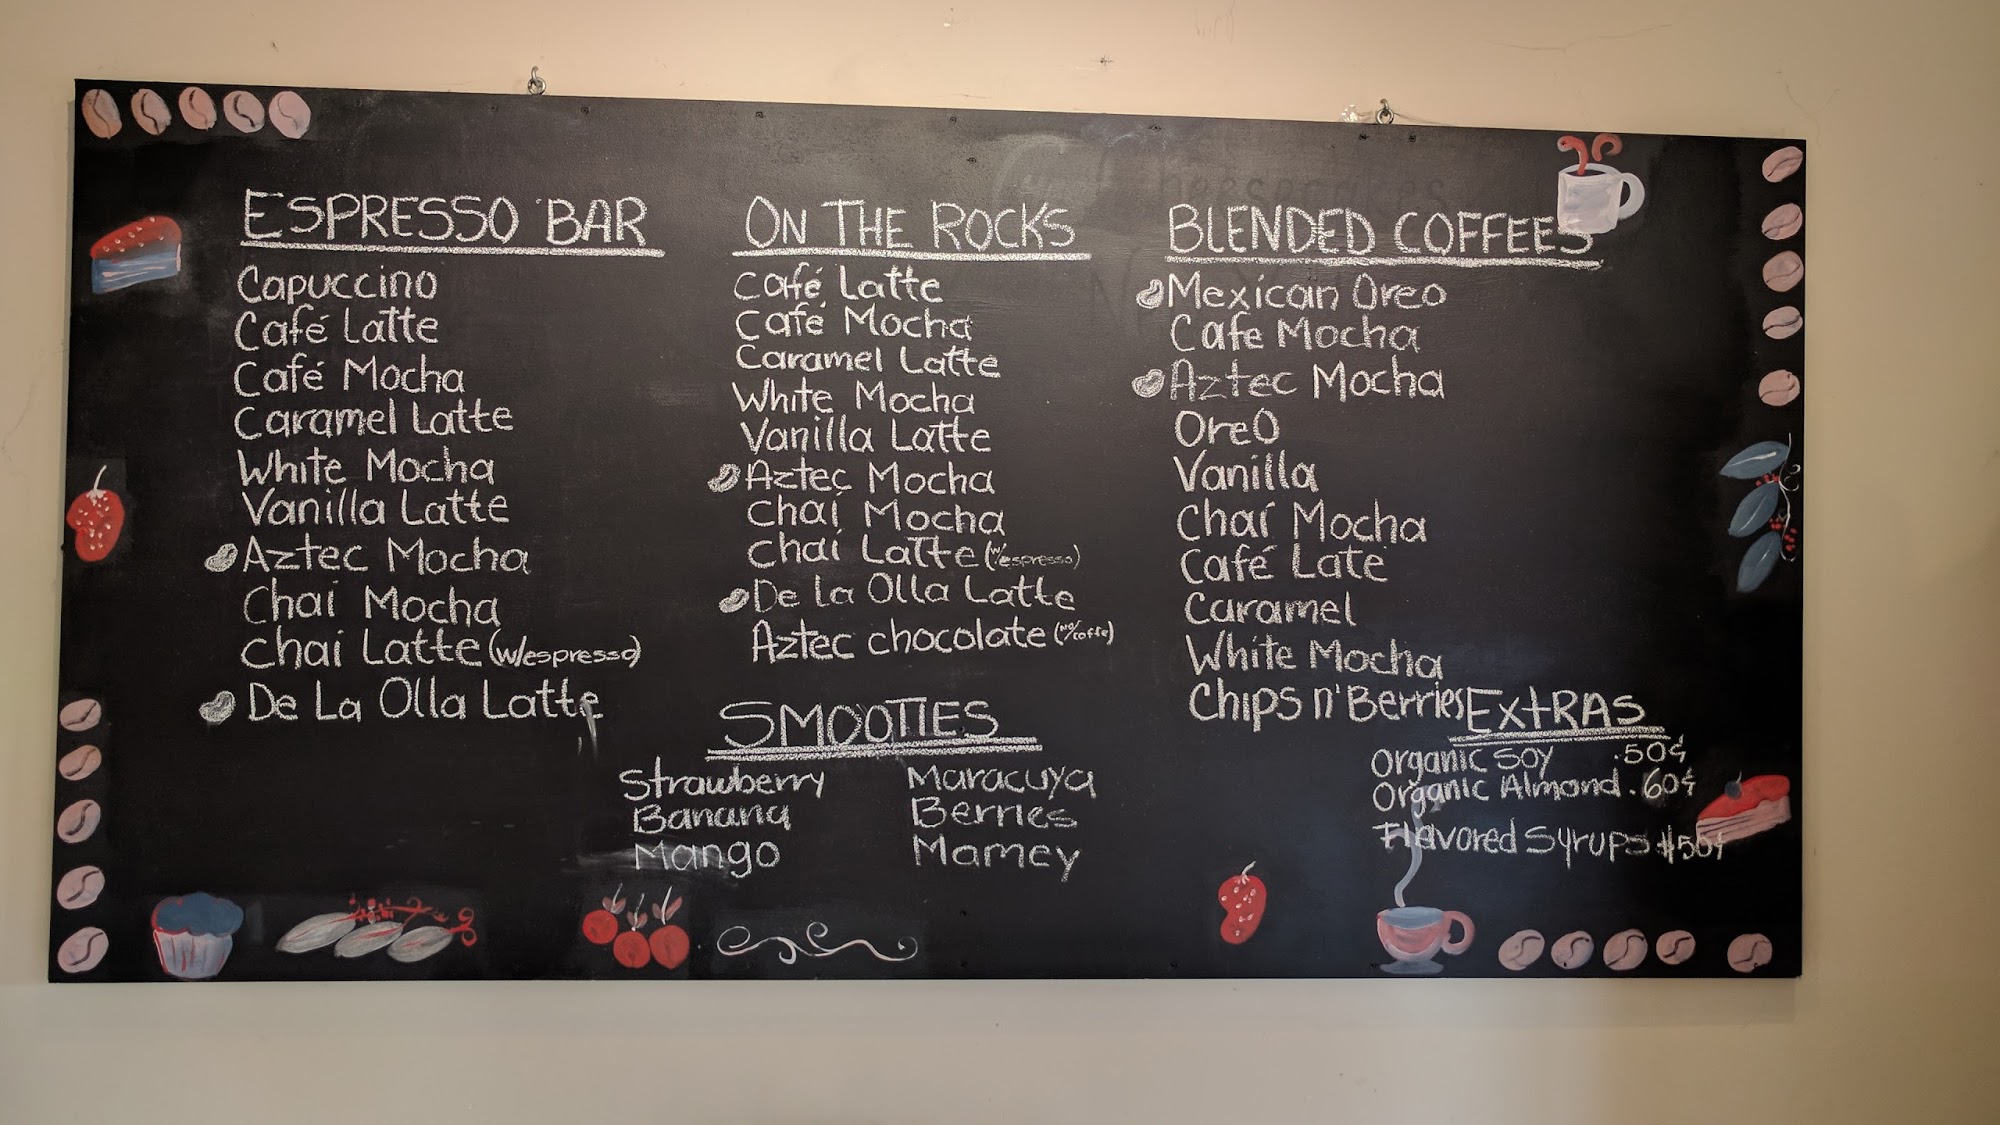 ESPRESSO BAR
Capuccino
Café Latte
Café Mocha
Caramel Latte
White Mocha
Vanilla Latte
Aztec Mocha
Chai Mocha
Chai Latte (w/espresso)
De La Olla Latte
ON THE ROCKS
Café Latte
Café Mocha
Caramel Latte
White Mocha
Vanilla Latte
Aztec Mocha
Chai Mocha
Chai Latte (w/espresso)
De La Olla Latte
Aztec chocolate (no/coffe)
SMOOTIES
Strawberry
Banana
Mango
Maracuya
Berries
Mamey
BLENDED COFFEES
Mexican Oreo
Cafe Mocha
Aztec Mocha
OreO
Vanilla
Chai Mocha
Café Late
Caramel
White Mocha
Chips n' Berries
ExtRAS
Organic Soy .50¢
Organic Almond .60¢
Flavored Syrups $50¢